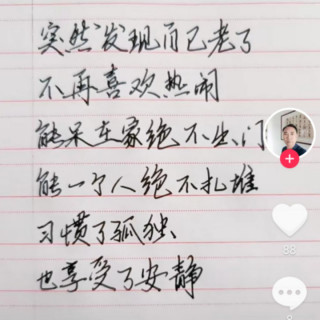 突然发现自己老了
不再喜欢热闹
能呆在家绝不出门
能一个人绝不扎堆
习惯了孤独
也享受了安静